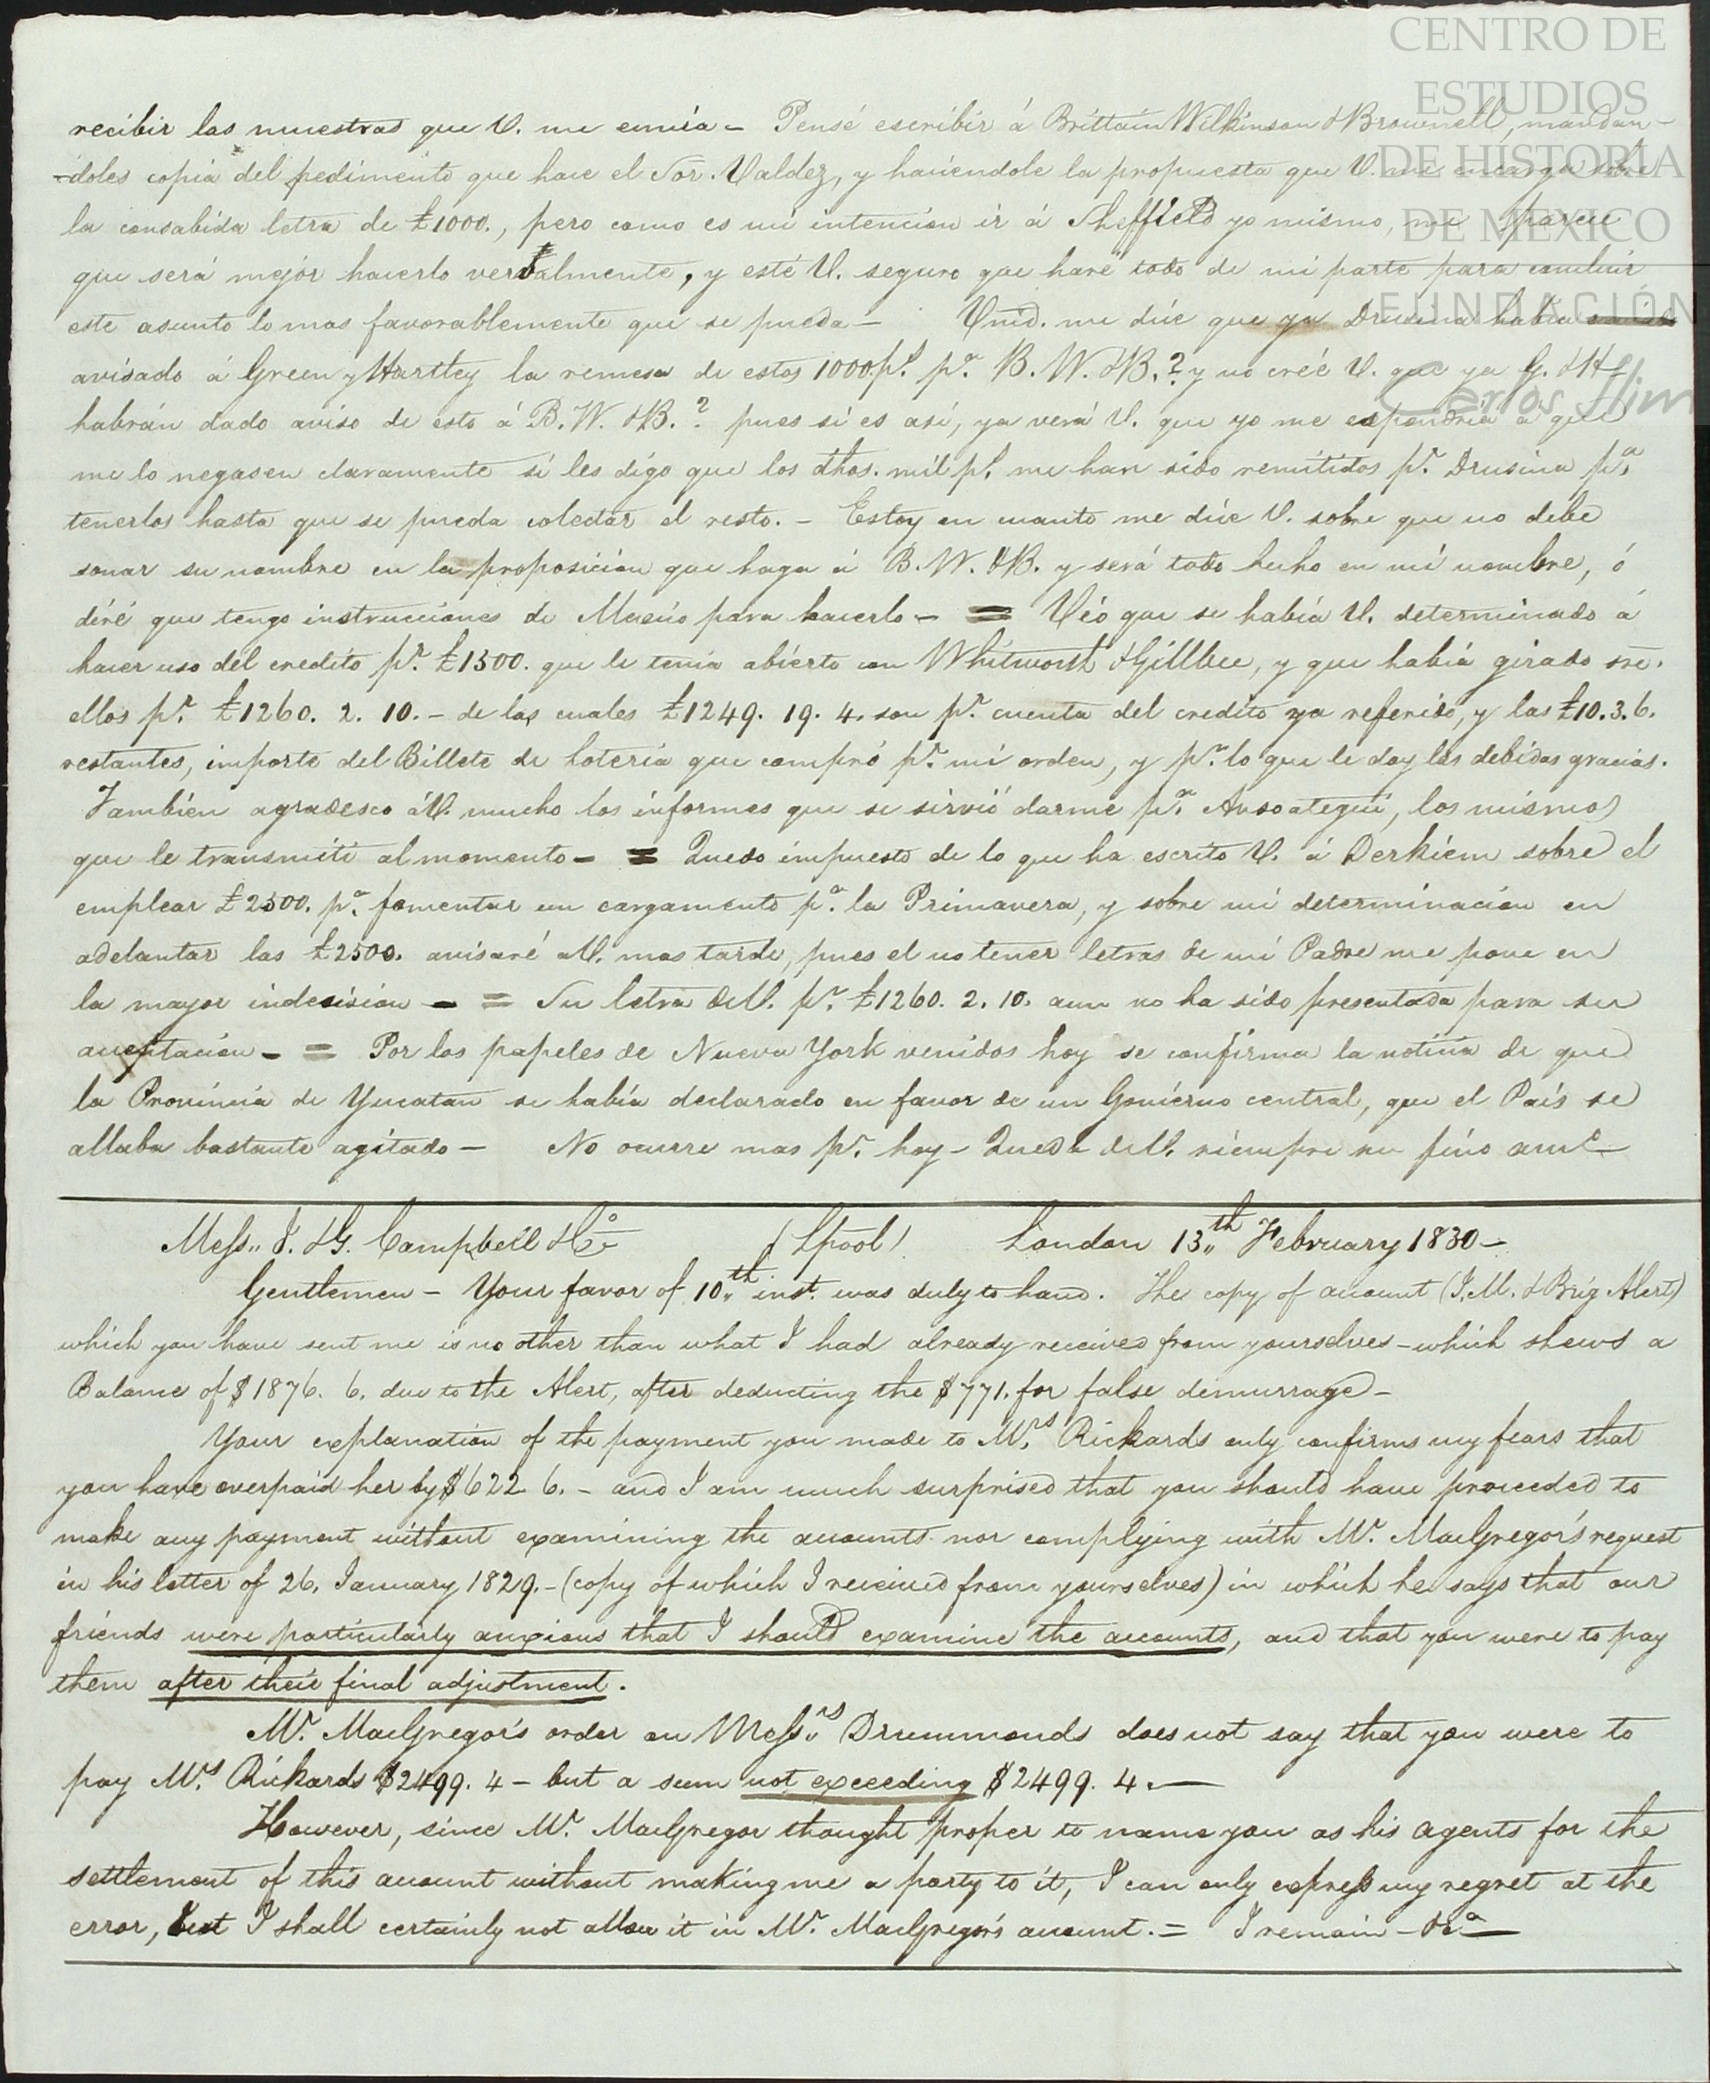 CENTRO DE
ESTUDIOS
DE HISTORIA
DE MÉXICO
FUNDACIÓN
Carlos Slim
recibir las muestras que V. me envia – Pensé escribir á Brittain Wilkinson & Brownell, mandan-
-doles copia del pedimento que hace el Sor. Valdez, y haciendole la propuesta que V. me encarga sobre
la consabida letra de £1000., pero como es mi intencion ir á Sheffield yo mismo, me parece
que será mejor hacerlo verbalmente, y esté V. seguro que haré todo de mi parte para concluir
este asunto lo mas favorablemente que se pueda – Vmd. me dice que ya Drusina habia
avisado á Green y Hartley la remesa de estos 1000 ps. pa. B. W. & B.? y no creé V. que ya G. & H
habrán dado aviso de esto á B. W. & B.? pues si es asi, ya verá V. que yo me espondria á que
me lo negasen claramente si les digo que los dhos. mil ps. me han sido remitidos pr. Drusina pa.
tenerlos hasta que se pueda colectar el resto. – Estoy en cuanto me dice V. sobre que no debe
sonar su nombre en la proposicion que haga á B. W. & B. y será todo hecho en mi nombre, ó
diré que tengo instrucciones de Mexico para hacerlo – = Véo que se habia V. determinado á
hacer uso del credito pr. £1300. que le tenia abierto con Whitworth & Gillbee, y que habia girado sre.
ellos pr. £1260. 2. 10. – de las cuales £1249. 19. 4. son pr. cuenta del credito ya referido, y las £10. 3. 6.
restantes, importe del Billete de loteria que compró pr. mi orden, y pr. lo que le doy las debidas gracias.
Tambien agradesco á V. mucho los informes que se sirvió darme pa. Ansoategui, los mismos
que le transmiti al momento – = Quedo impuesto de lo que ha escrito V. á Derkiem sobre el
emplear £2500. pa. fomentar un cargamento pa. la Primavera, y sobre mi determinacion en
adelantar las £2500. avisaré á V. mas tarde, pues el no tener letras de mi Padre me pone en
la mayor indesision – = Su letra de V. pr. £1260. 2. 10. aun no ha sido presentada para su
aceptacion – = Por los papeles de Nueva York venidos hoy se confirma la noticia de que
la Provincia de Yucatan se habia declarado en favor de un Govierno central, que el País se
allaba bastante agitado – No ocurre mas pr. hoy – Queda de V. siempre su fino amo.
Messrs. J. & G. Campbell & Co. (Lpool) London 13th February 1830 –
Gentlemen – Your favor of 10th inst. was duly to hand. The copy of account (J. M. & Brig Alert)
which you have sent me is no other than what I had already received from yourselves – which shews a
Balance of $1876. 6. due to the Alert, after deducting the $771. for false demurrage –
Your explanation of the payment you made to Mrs. Rickards only confirms my fears that
you have overpaid her by $622. 6. – and I am much surprised that you should have proceeded to
make any payment without examining the accounts nor complying with Mr. MacGregor's request
in his letter of 26. January 1829. – (copy of which I received from yourselves) in which he says that our
friends were particularly anxious that I should examine the accounts, and that you were to pay
them after their final adjustment.
Mr. MacGregor's order on Messrs. Drummonds does not say that you were to
pay Mrs. Rickards $2499. 4 – but a sum not exceeding $2499. 4. –
However, since Mr. MacGregor thought proper to name you as his agents for the
settlement of this account without making me a party to it, I can only express my regret at the
error, but I shall certainly not allow it in Mr. MacGregor's account. = I remain – &ca. –